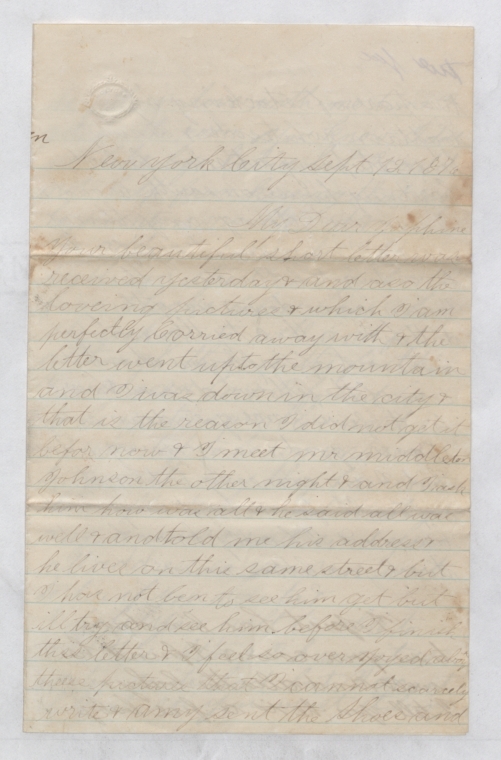 New York City Sept 12 187
My Dear Nephew
Your beautiful short letter was
received yesterday & and aso the
lovering pictures & which I am
perfectly Carried away with & the
letter went up to the mountain
and I was down in the city &
that is the reason I did not get it
befor now & I meet mr middleton
Johnson the other night & and I ask
him how was all & he said all was
well & and told me his address &
he lives on this same street & but
I have not been to see him yet but
ill try and see him before I finish
this letter & I feel so over
these pictures that I can not scarcely
write & Amy sent the Shoes and